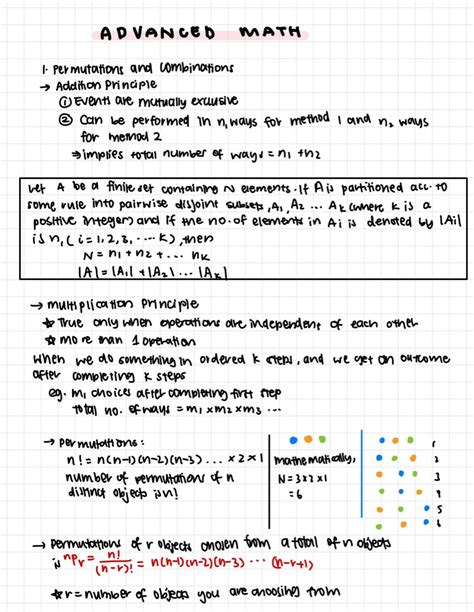 ADVANCED MATH
1. Permutations and Combinations
→ Addition Principle
① Events are mutually exclusive
② Can be performed in n, ways for method 1 and n₂ ways
for method 2
⇒ implies total number of ways = n₁ + n₂
Let A be a finite set containing N elements. If A is partitioned acc. to
some rule into pairwise disjoint subsets, A₁, A₂ ... Aₖ (where k is a
positive integer) and if the no. of elements in Aᵢ is denoted by |Aᵢ|
is nᵢ ( i = 1, 2, 3, ... k), then
N = n₁ + n₂ + ... nₖ
|A| = |A₁| + |A₂| ... |Aₖ|
→ multiplication principle
★ True only when operations are independent of each other
★ more than 1 operation
When we do something in ordered k steps, and we get an outcome
after completing k steps
eg. m, choices after completing first step
total no. of ways = m₁ x m₂ x m₃ ...
→ permutations:
n! = n(n-1)(n-2)(n-3) ... x 2 x 1
number of permutations of n
distinct objects is n!
mathematically,
N = 3 x 2 x 1
= 6
1
2
3
4
5
6
→ Permutations of r objects chosen from a total of n objects
is ⁿPᵣ = n!/(n-r)! = n(n-1)(n-2)(n-3) ... (n-r+1)
★ r = number of objects you are choosing from